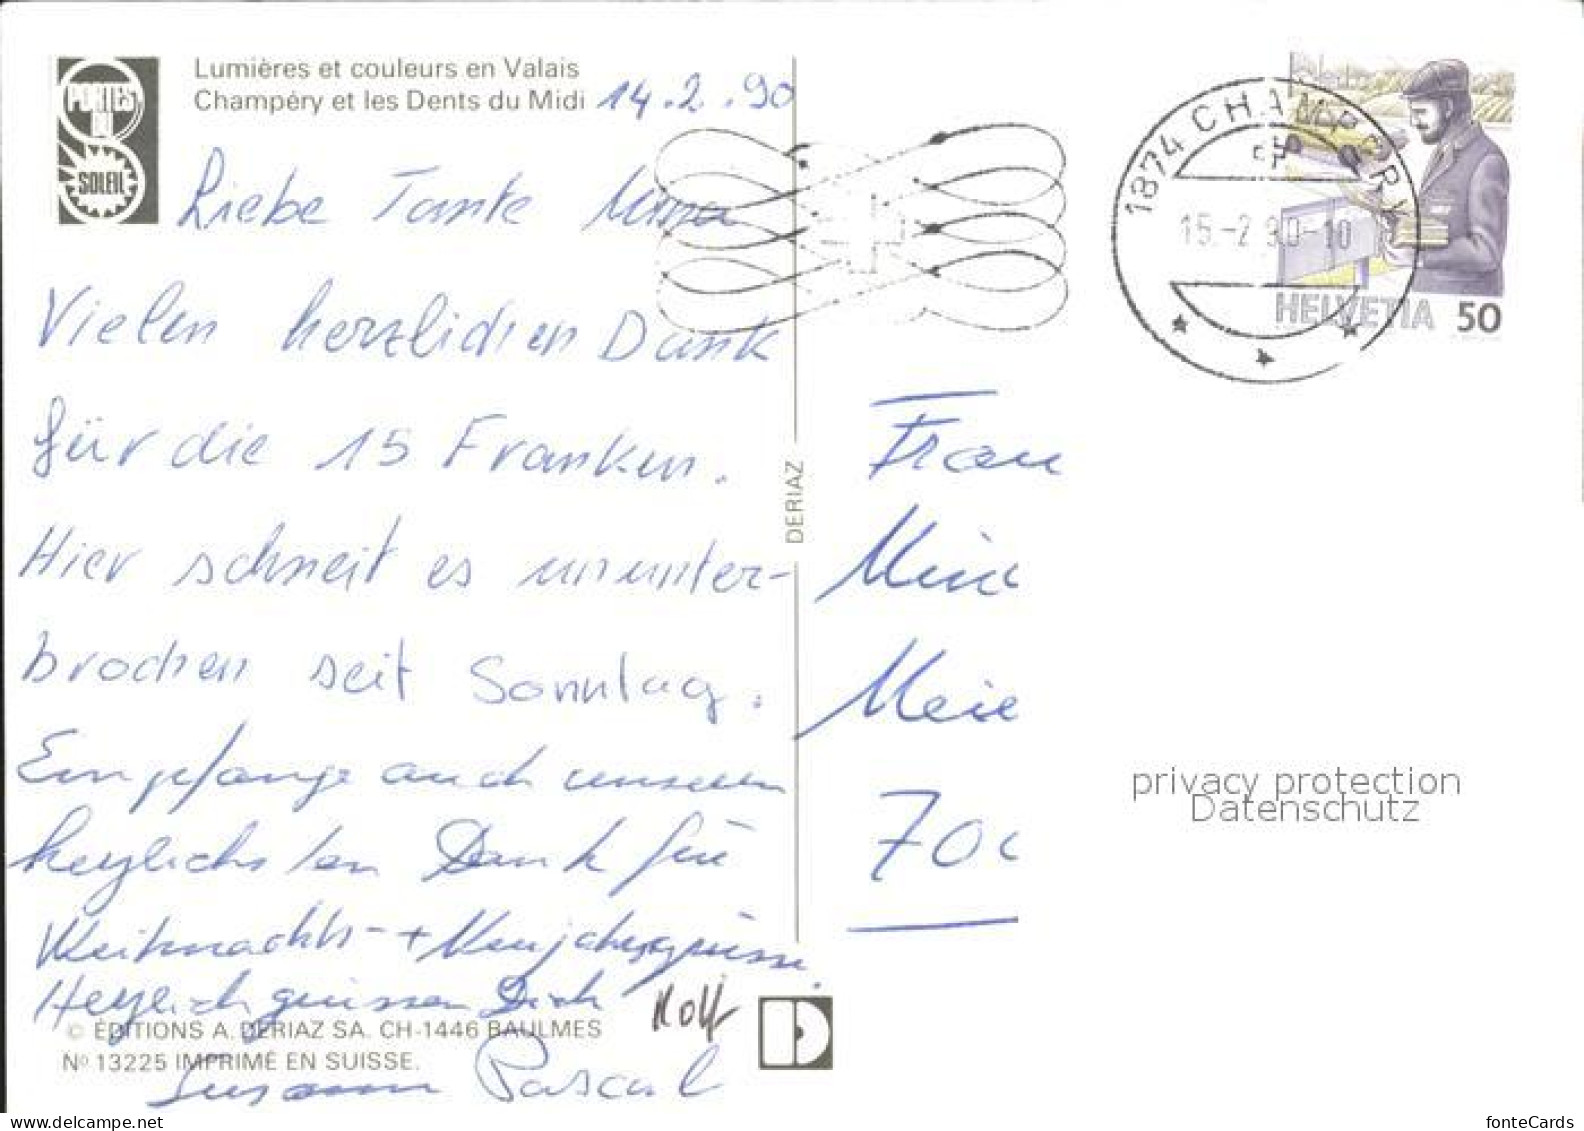 PORTES DU SOLEIL
Lumières et couleurs en Valais
Champéry et les Dents du Midi 14.2.90
Liebe Tante Mina
Vielen herzlichen Dank
für die 15 Franken.
Hier schneit es ununter-
brochen seit Sonntag.
Empfange auch unseren
herzlichsten Dank für
Weihnachts- + Neujahrsgrüsse.
Herzlich grüssen Dich Rolf
© ÉDITIONS A. DERIAZ SA. CH-1446 BAULMES
Nº 13225 IMPRIMÉ EN SUISSE.
Susanne Pascal
DERIAZ
1874 CHAMPÉRY
15.-2.90-10
HELVETIA 50
Frau
Mina
Meie
700
privacy protection
Datenschutz
www.delcampe.net
fonteCards